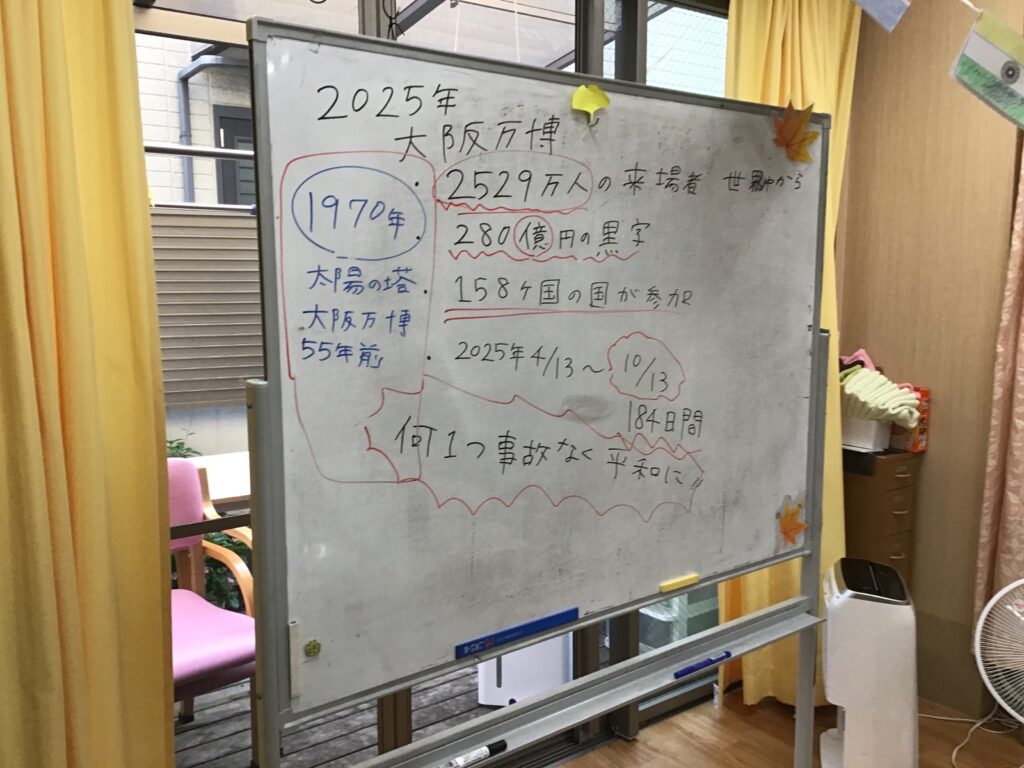 2025年
大阪万博
・2529万人の来場者 世界中から
・280億円の黒字
・158ヶ国の国が参加
・2025年4/13〜10/13
184日間
何1つ事故なく平和に〃
1970年
太陽の塔
大阪万博
55年前